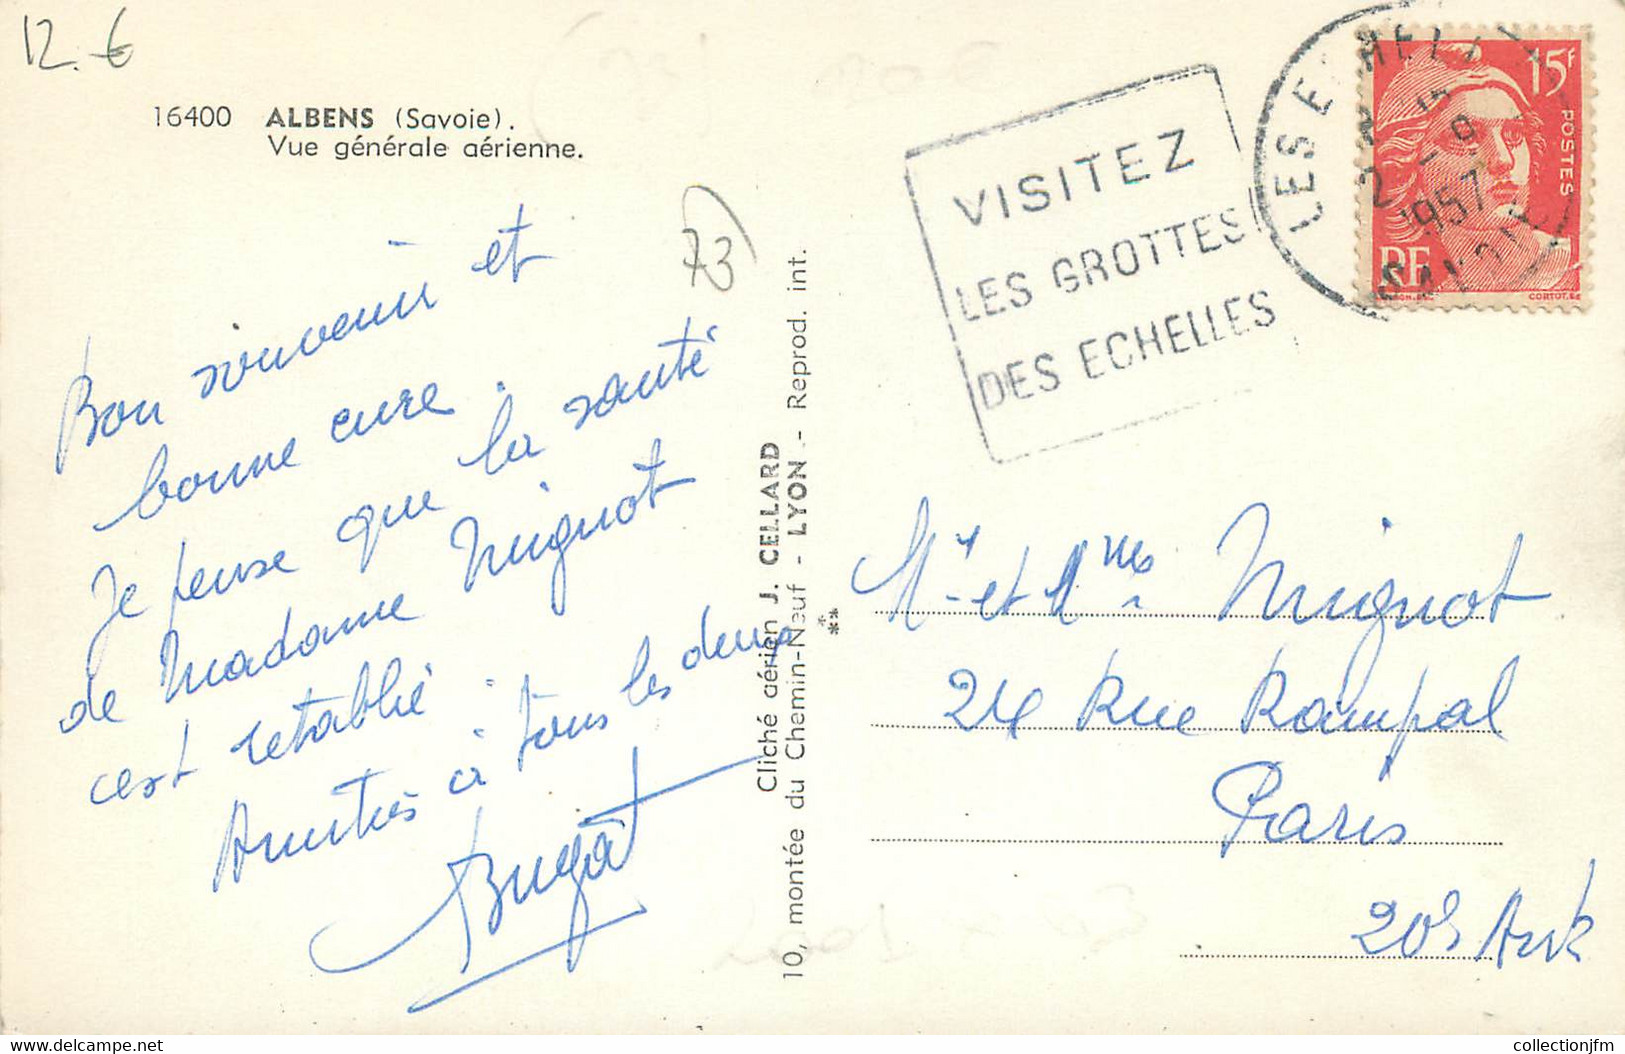 12.€
16400 ALBENS (Savoie).
Vue générale aérienne.
73
Bon souvenir et
bonne cure.
Je pense que la santé
de Madame Mignot
est rétablie.
Amitiés à tous les deux
Cliché aérien J. CELLARD
10, montée du Chemin-Neuf - LYON - Reprod. int.
VISITEZ
LES GROTTES
DES ECHELLES
LES ECHELLES
1957
SAVOIE
15F
POSTES
RF
CORTOT.SC
Mr et Mme Mignot
24 Rue Rampal
Paris
20e Arr
delcampe.net
collectionjfm